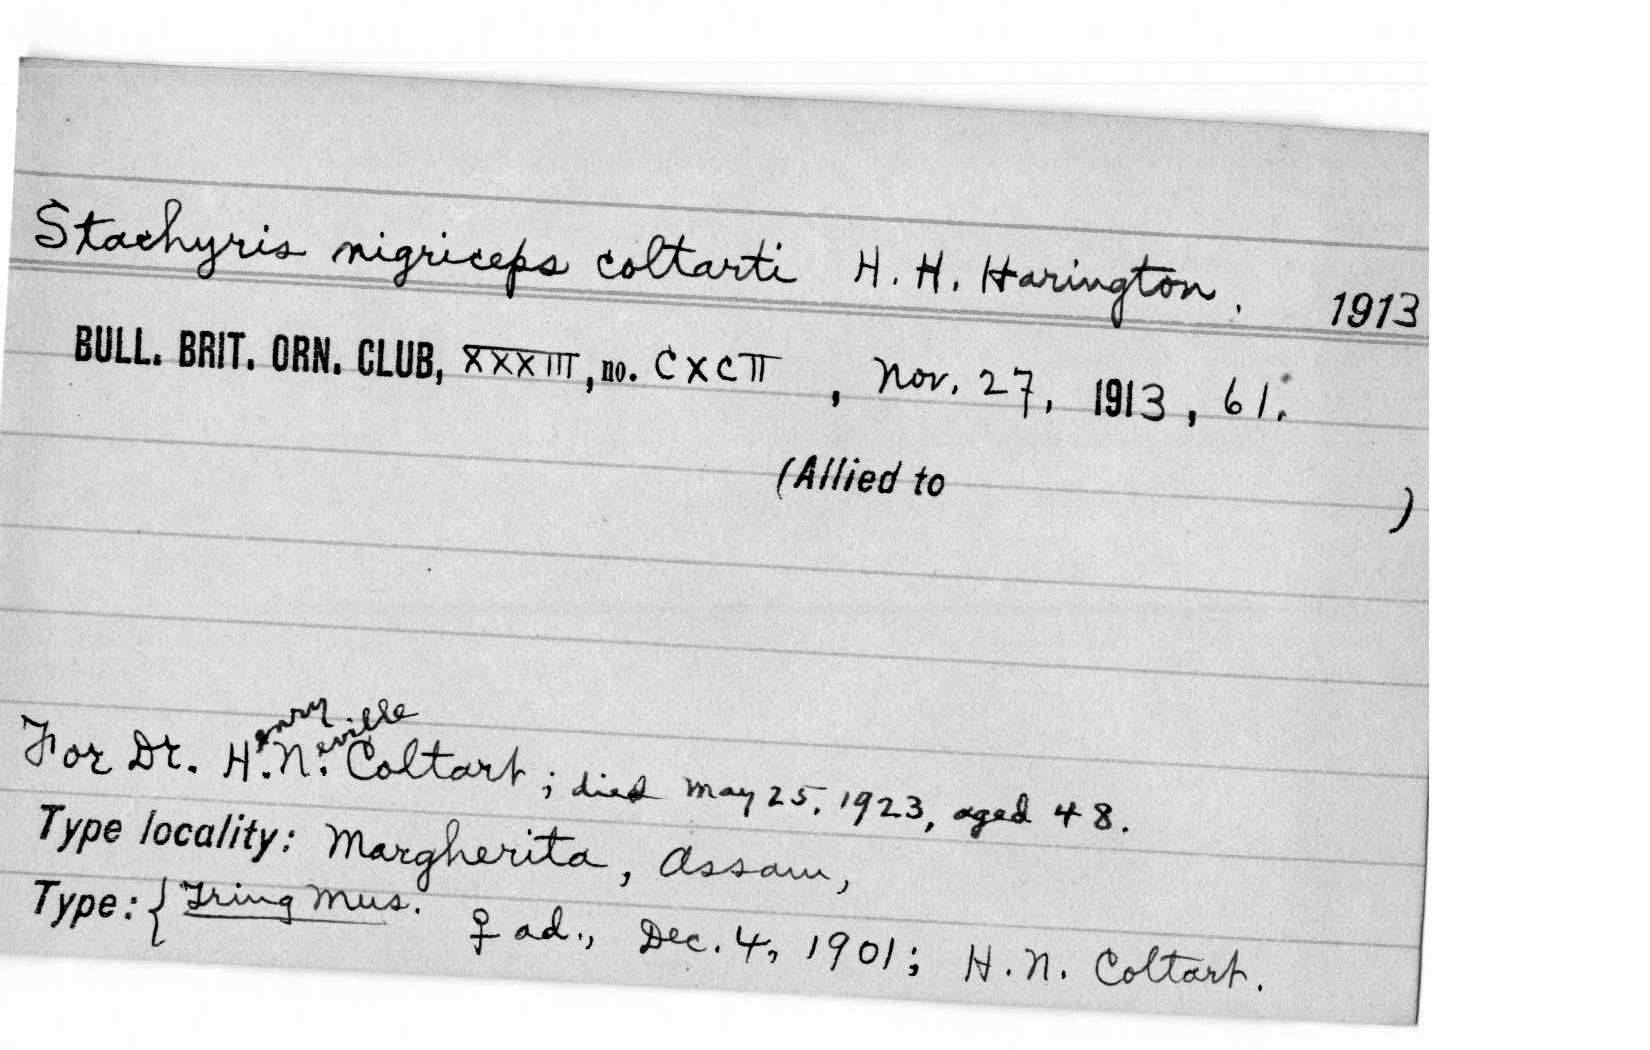 Stachyris nigriceps coltarti H. H. Harington. 1913
BULL. BRIT. ORN. CLUB, XXXIII, no. CXCII, Nov. 27, 1913, 61.
(Allied to )
enry eville
For Dr. H. N. Coltart; died May 25, 1923, aged 48.
Type locality: Margherita, Assam,
Type: { Tring Mus. ♀ ad., Dec. 4, 1901; H. N. Coltart.